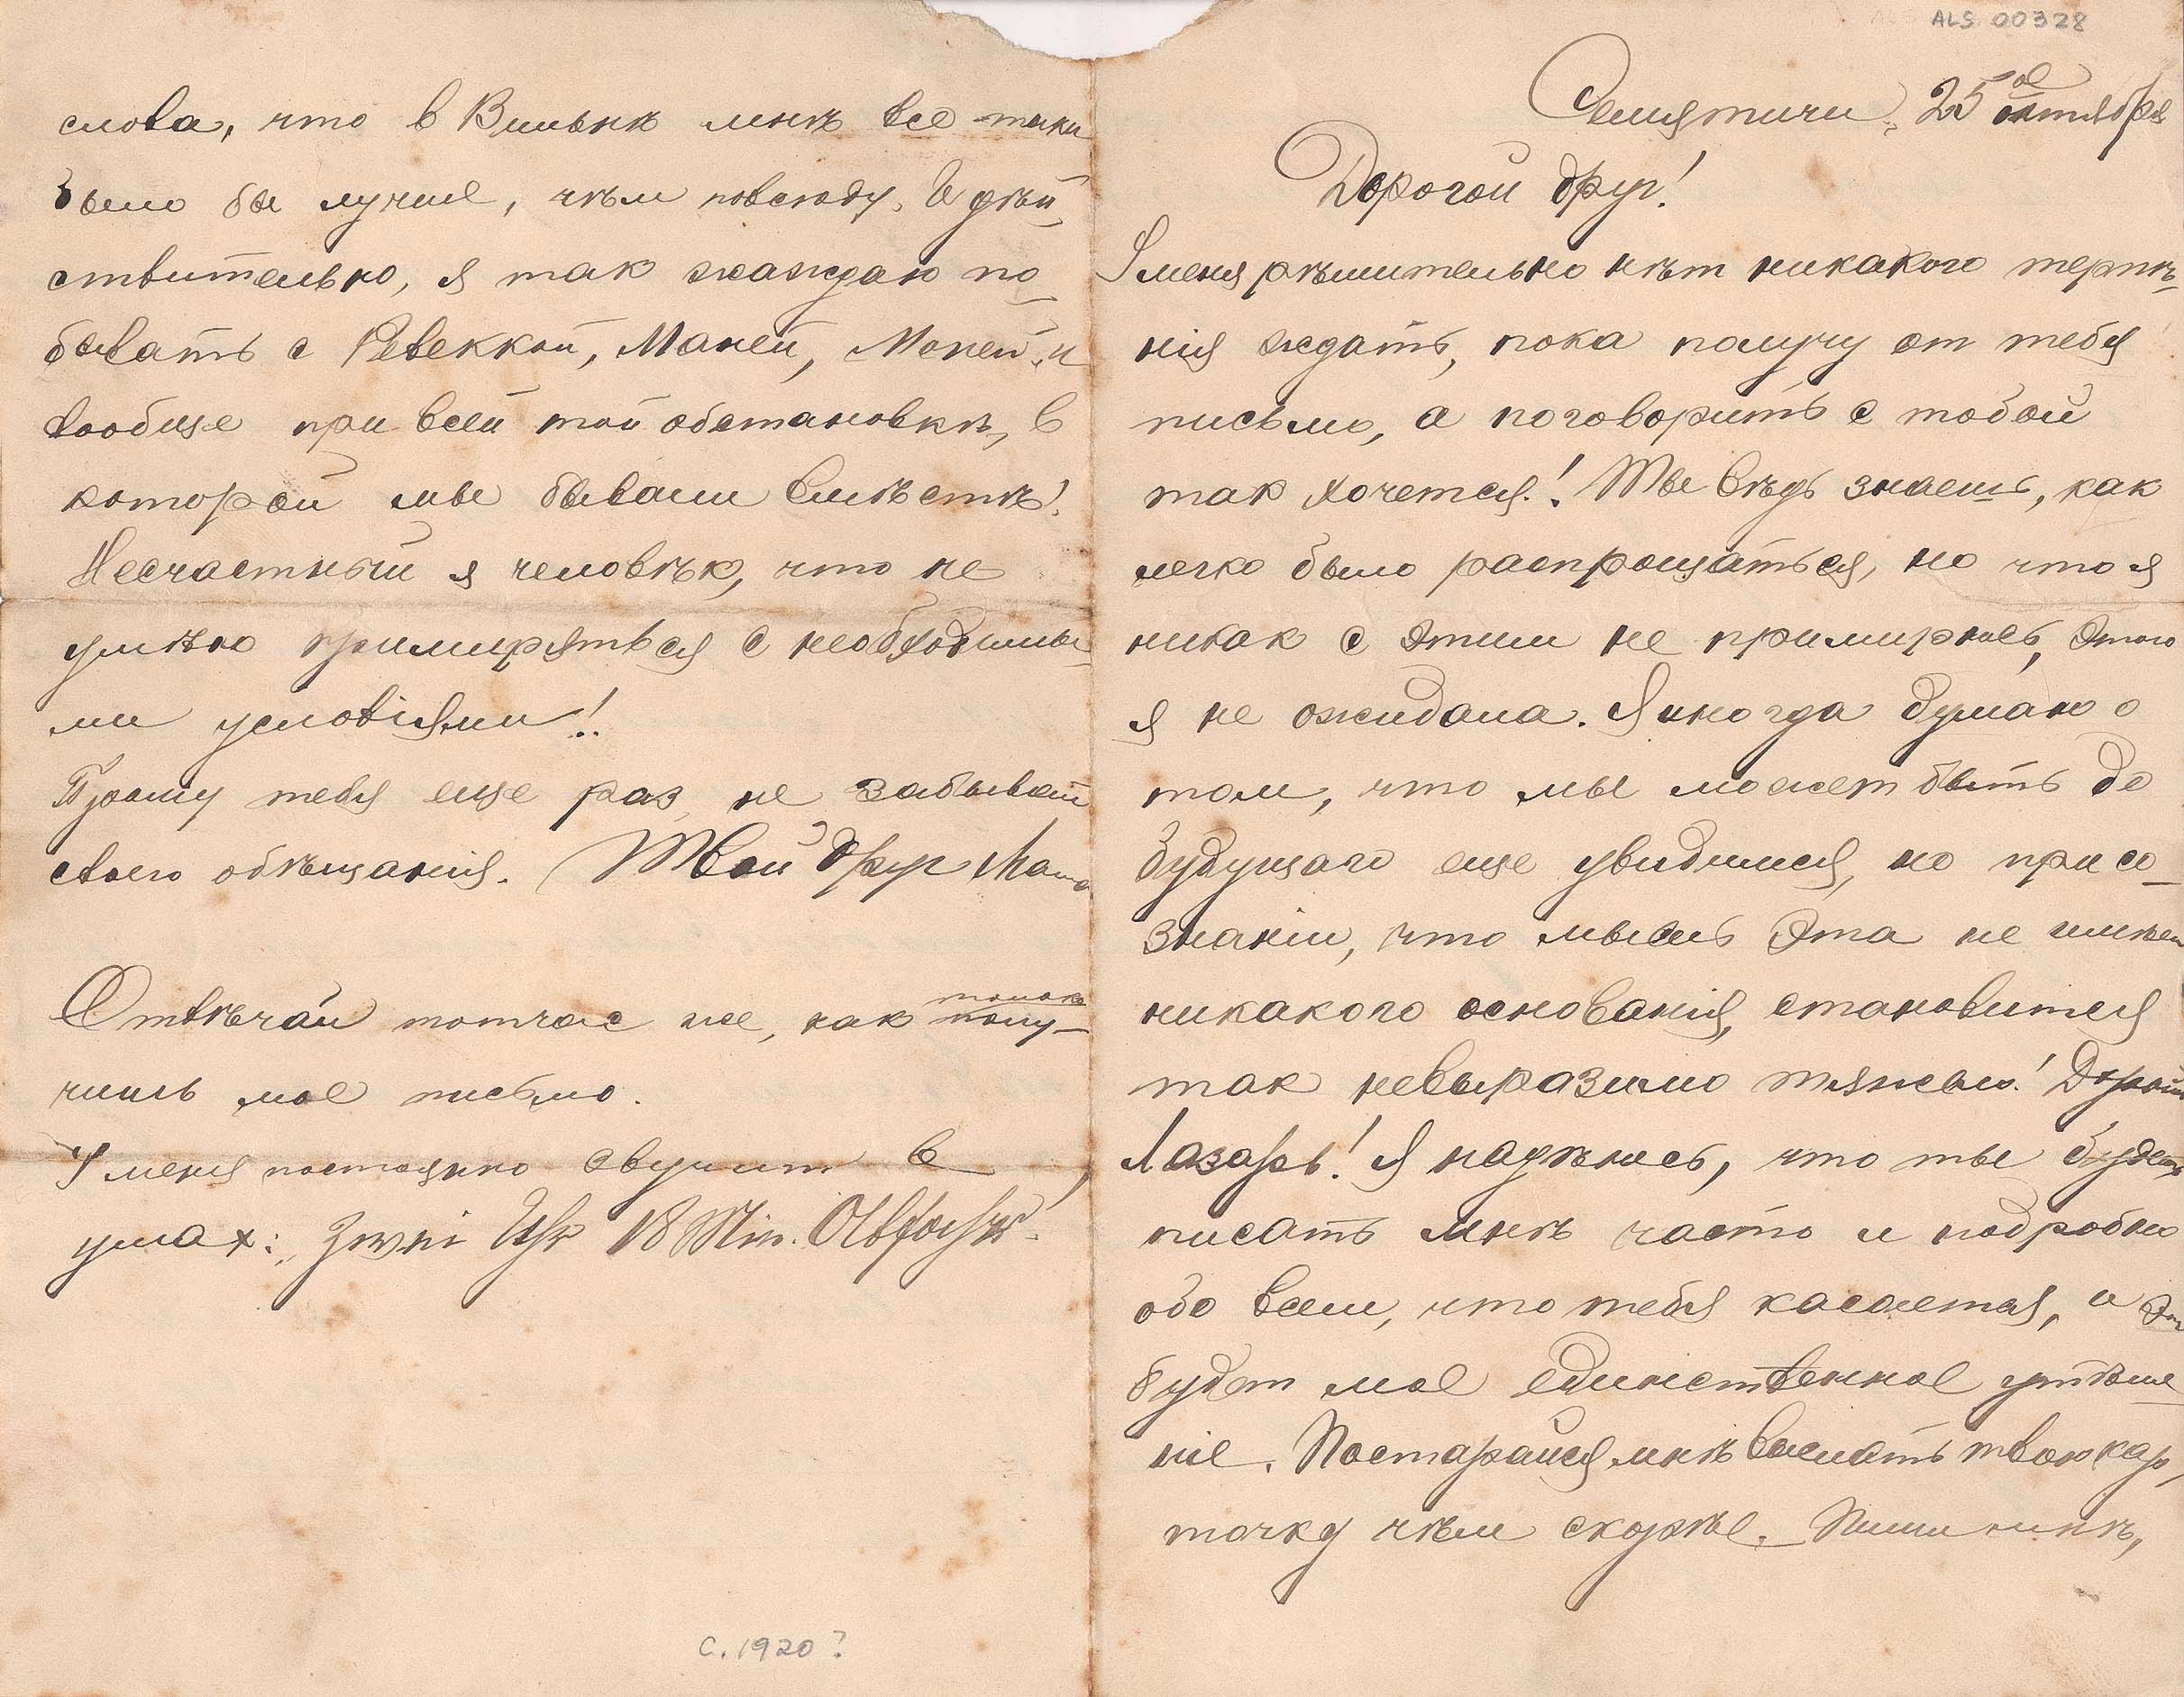 ALS 00328
Семятичи, 25ое октября
Дорогой друг!
У меня рѣшительно нѣт никакого терпѣ-
нія ждать, пока получу от тебя
письмо, а поговорить с тобой
так хочется! Ты вѣдь знаешь, как
легко было распрощаться, но что я
никак с этим не примирюсь, этого
я не ожидала. Я иногда думаю о
том, что мы может быть до
будущаго еще увидимся, но при со-
знаніи, что мысль эта не имѣет
никакого основанія, становится
так невыразимо тяжело! Дорогой
Лазарь! Я надѣюсь, что ты будешь
писать мнѣ часто и подробно
обо всем, что тебя касается, и это
будет мое единственное утѣше-
ніе. Постарайся мнѣ выслать твою кар-
точку чѣм скорѣе. Пиши мнѣ,
слова, что в Вильнѣ мнѣ все-таки
было бы лучше, чѣм повсюду. И дѣй-
ствительно, я так жажду по-
бывать с Ревеккой, Маней, Моней и
вообще при всей той обстановкѣ, в
которой мы бывали вмѣстѣ!
Несчастный я человѣк, что не
умѣю примиряться с необходимы-
ми условіями!
Прошу тебя еще раз, не забывай
своего обѣщанія. Твой друг Маша
Отвѣчай тотчас же, как только полу-
чишь мое письмо.
У меня постоянно звучит в
ушах: Zwei Uhr 18 Min. Abfahrt!
C. 1920?